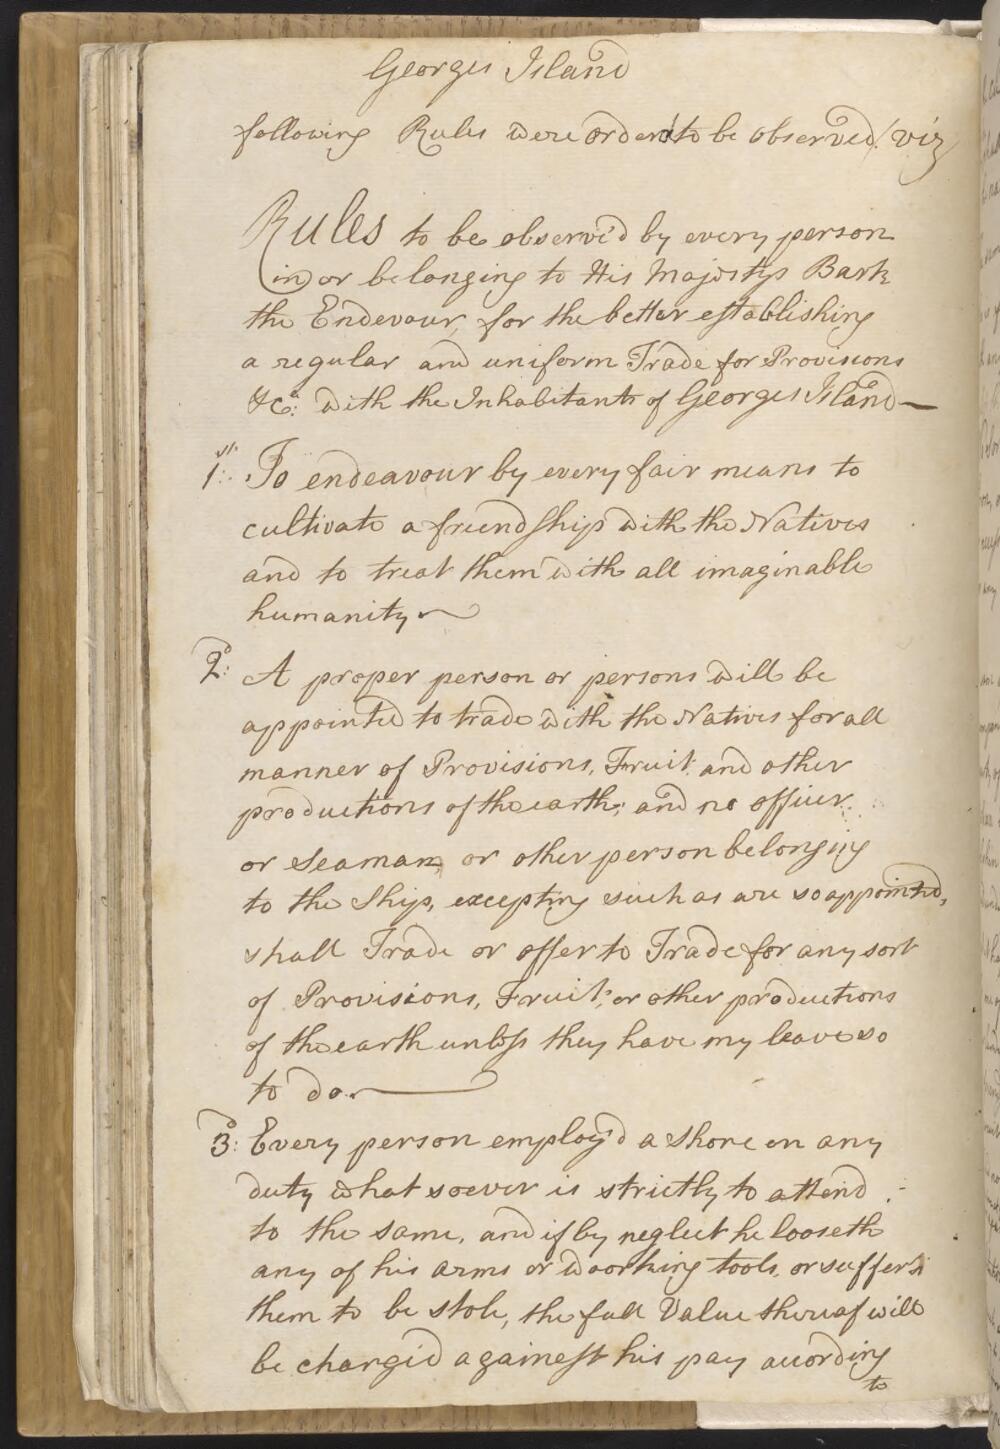 Georges Island
following Rules were order'd to be observed/viz
Rules to be observe'd by every person
in or belonging to His Majestys Bark
the Endevour, for the better establishing
a regular and uniform Trade for Provisions
&Ca: with the Inhabitants of Georges Island—
1st: To endeavour by every fair means to
cultivate a friendship with the Natives
and to treat them with all imaginable
humanity
2d: A proper person or persons will be
appointed to trade with the Natives for all
manner of Provisions, Fruit, and other
productions of the earth; and no officer
or Seaman, or other person belonging
to the Ship, excepting such as are so appointed,
shall Trade or offer to Trade for any sort
of Provisions, Fruit, or other productions
of the earth unless they have my leave so
to do.
3d: Every person employ'd a shore on any
duty what soever is strictly to attend
to the same, and if by neglect he looseth
any of his arms or woorking tools, or suffers
them to be stole, the full Value thereof will
be charge'd againest his pay according
to